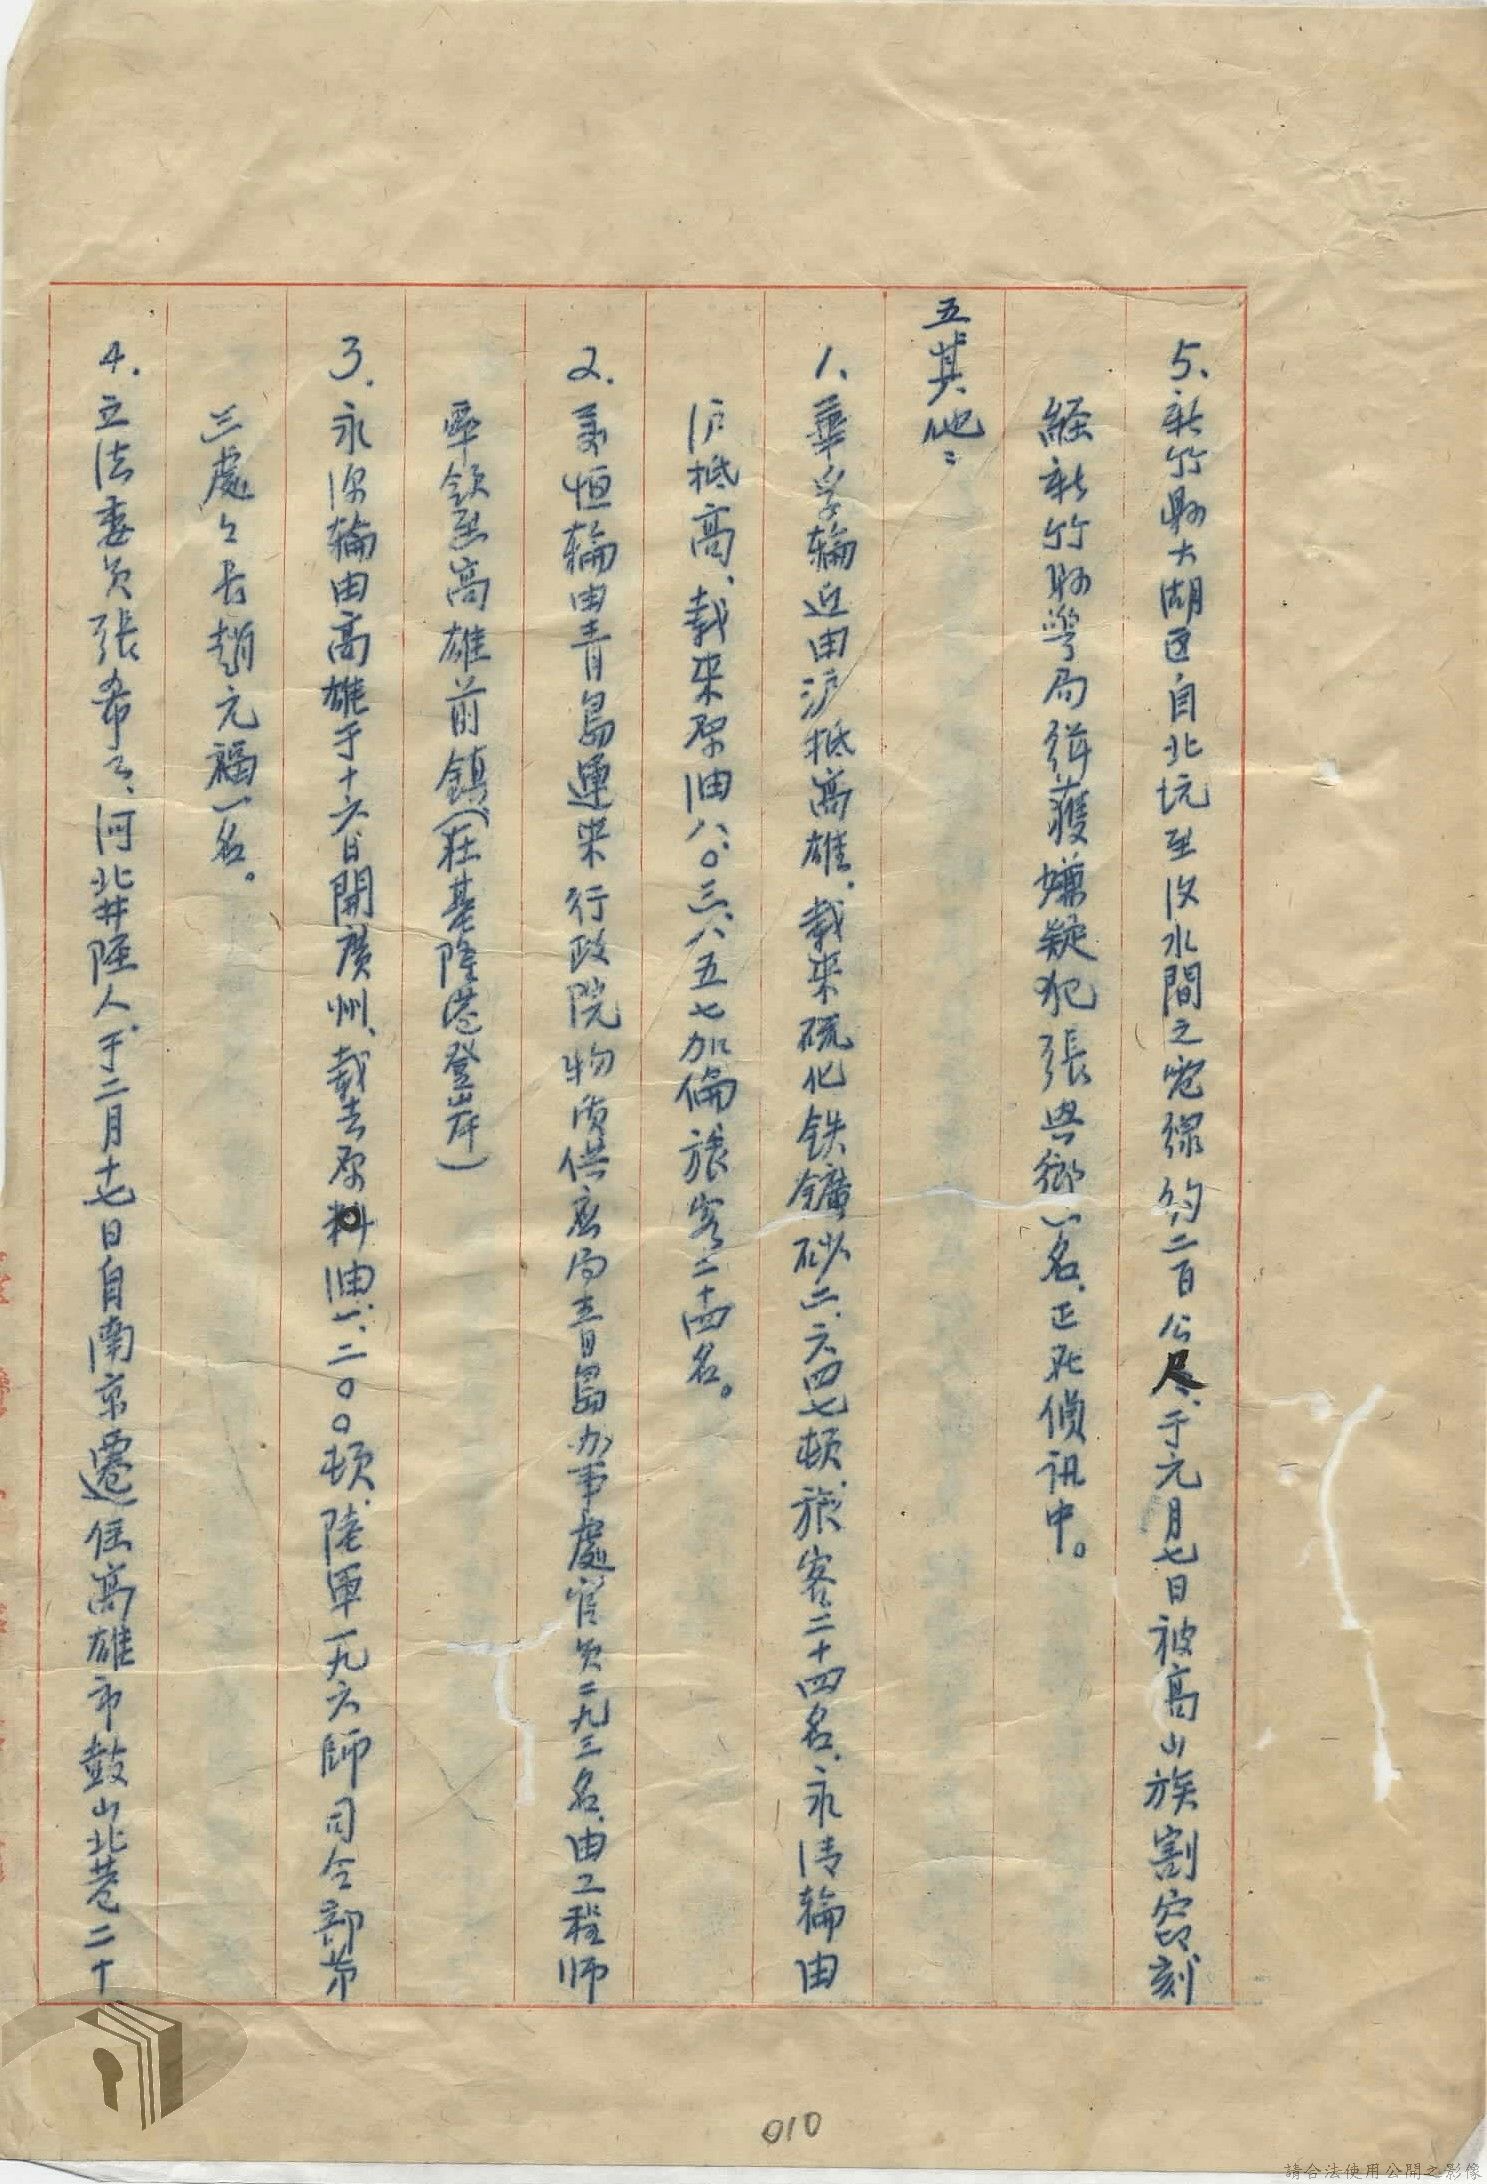 5、新竹縣大湖区自北坑至汶水間之電線約二百公尺、于元月七日被高山族割窃刻
経新竹縣警局緝獲嫌疑犯張興鄉一名、正在偵訊中。
五、其他：
1、華孚輪近由沪抵高雄、載来硫化铁鑛砂二、六四七頓、旅客二十四名、永清輪由
沪抵高、載来原油八、〇三八、五七加倫、旅客二十四名。
2.美恒輪由青島運来行政院物资供应局青島办事處官员二九三名、由工程师
率領至高雄前鎮、(在基隆港登岸)
3.永洪輪由高雄于十六日開廣州、載去原料油一、二〇〇頓、陸軍一九六師司令部第
三處々長趙元福一名。
4.立法委员張希之、河北井陘人、于二月十七日自南京遷住高雄市鼓山北巷二十
010
請合法使用公開之影像